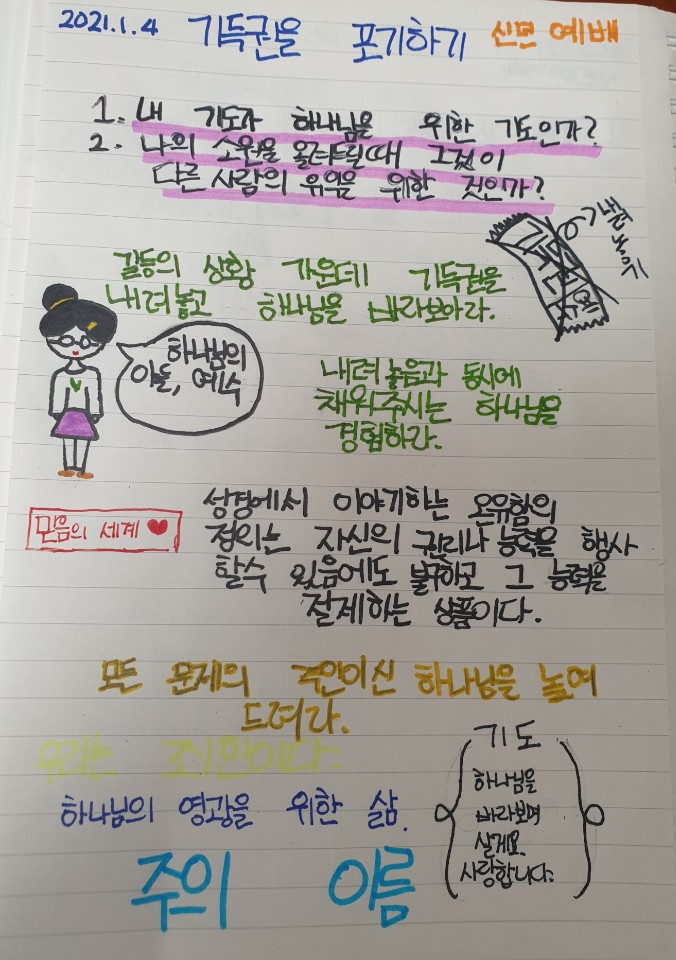 2021.1.4 기득권을 포기하기 신편 예배
1. 내 기도가 하나님을 위한 기도인가?
2. 나의 소원을 올려드릴때 그것이
다른 사람의 유익을 위한 것인가?
내려놓기
갈등의 상황 가운데 기득권을
내려놓고 하나님을 바라보아라.
하나님의
아들, 예수
내려놓음과 동시에
채워주시는 하나님을
경험하라.
믿음의 세계
성경에서 이야기하는 온유함의
정의는 자신의 권리나 능력을 행사
할수 있음에도 불구하고 그 능력을
절제하는 성품이다.
모든 문제의 주인이신 하나님을 높여
드려라.
우리는 죄인이다.
하나님의 영광을 위한 삶.
기도
하나님을
바라보며
살게요.
사랑합니다.
주의 이름